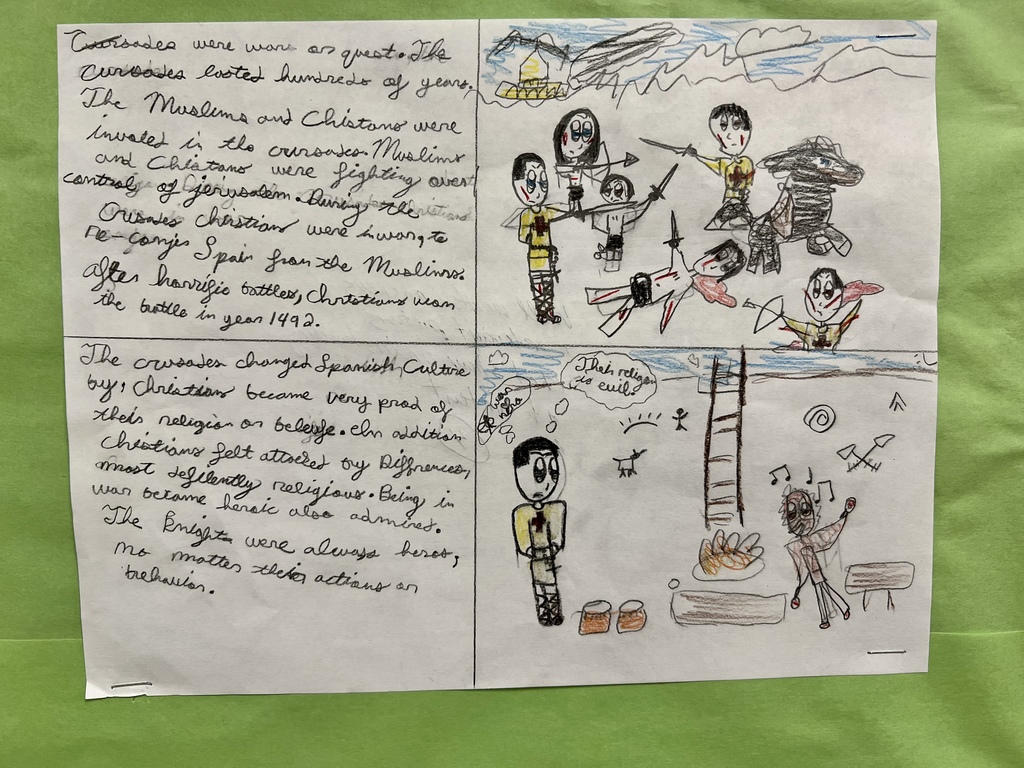 Cursades were wars or quest. The
cursades lasted hundreds of years.
The Muslims and Chistans were
involed in the cursades. Muslims
and Chistans were fighting over
control of jerusalem. During the
crusades Christians were in war, to
re-conjer Spain from the Muslims.
After horrific battles, Christians won
the battle in year 1492.
The crusades changed Spanish Culture
by, Christians became very prod of
their religion or beleife. In addition
Christians felt attacked by Diffrences,
most defilently religious. Being in
war became heroic also admires.
The Knights were always heros,
no matter their actions or
behavior.
Their religon
is evil.